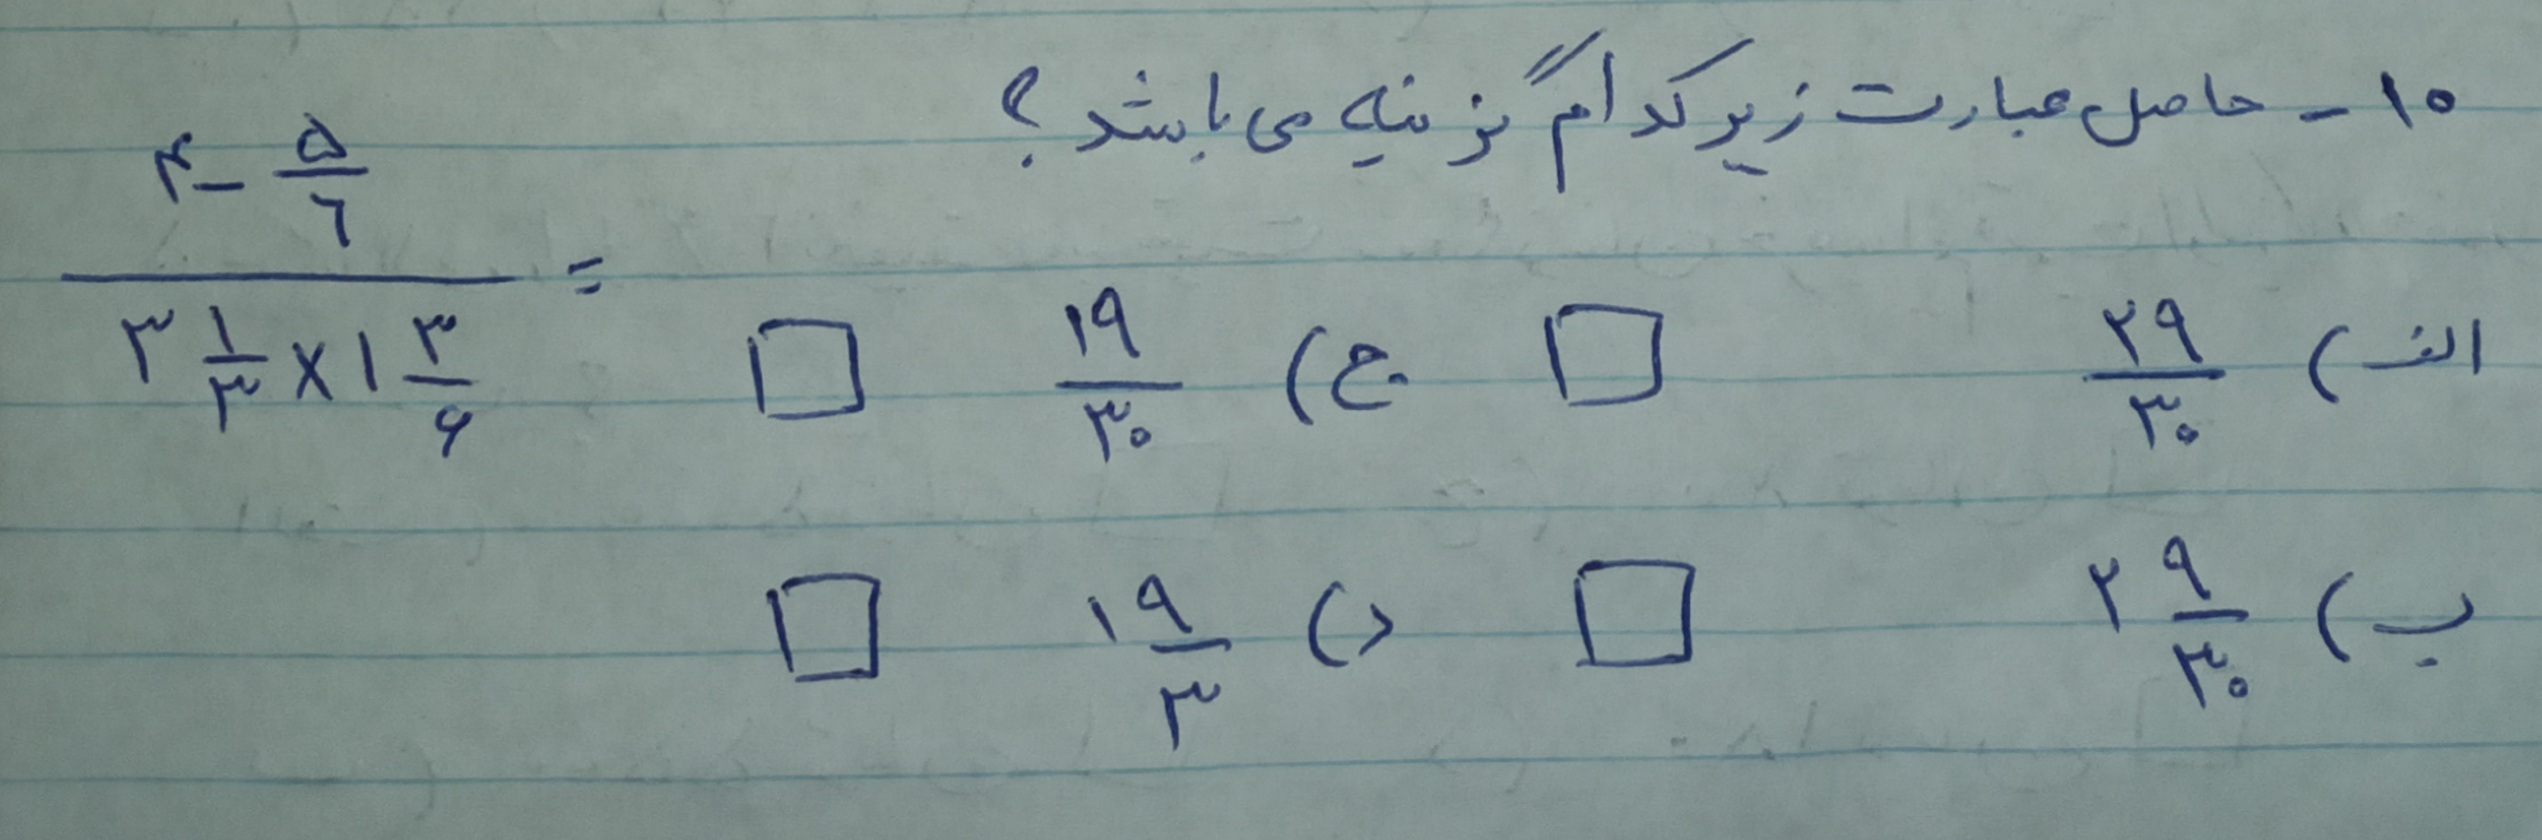 ۱۰ - حاصل عبارت زیر کدام گزینه می باشد؟
(۴ - ۵/۶) / (۳ ۱/۳ × ۱ ۳/۶) =
الف) ۲۹/۳۰ □ ج) ۱۹/۳۰ □
ب) ۲ ۹/۳۰ □ د) ۱ ۹/۳ □